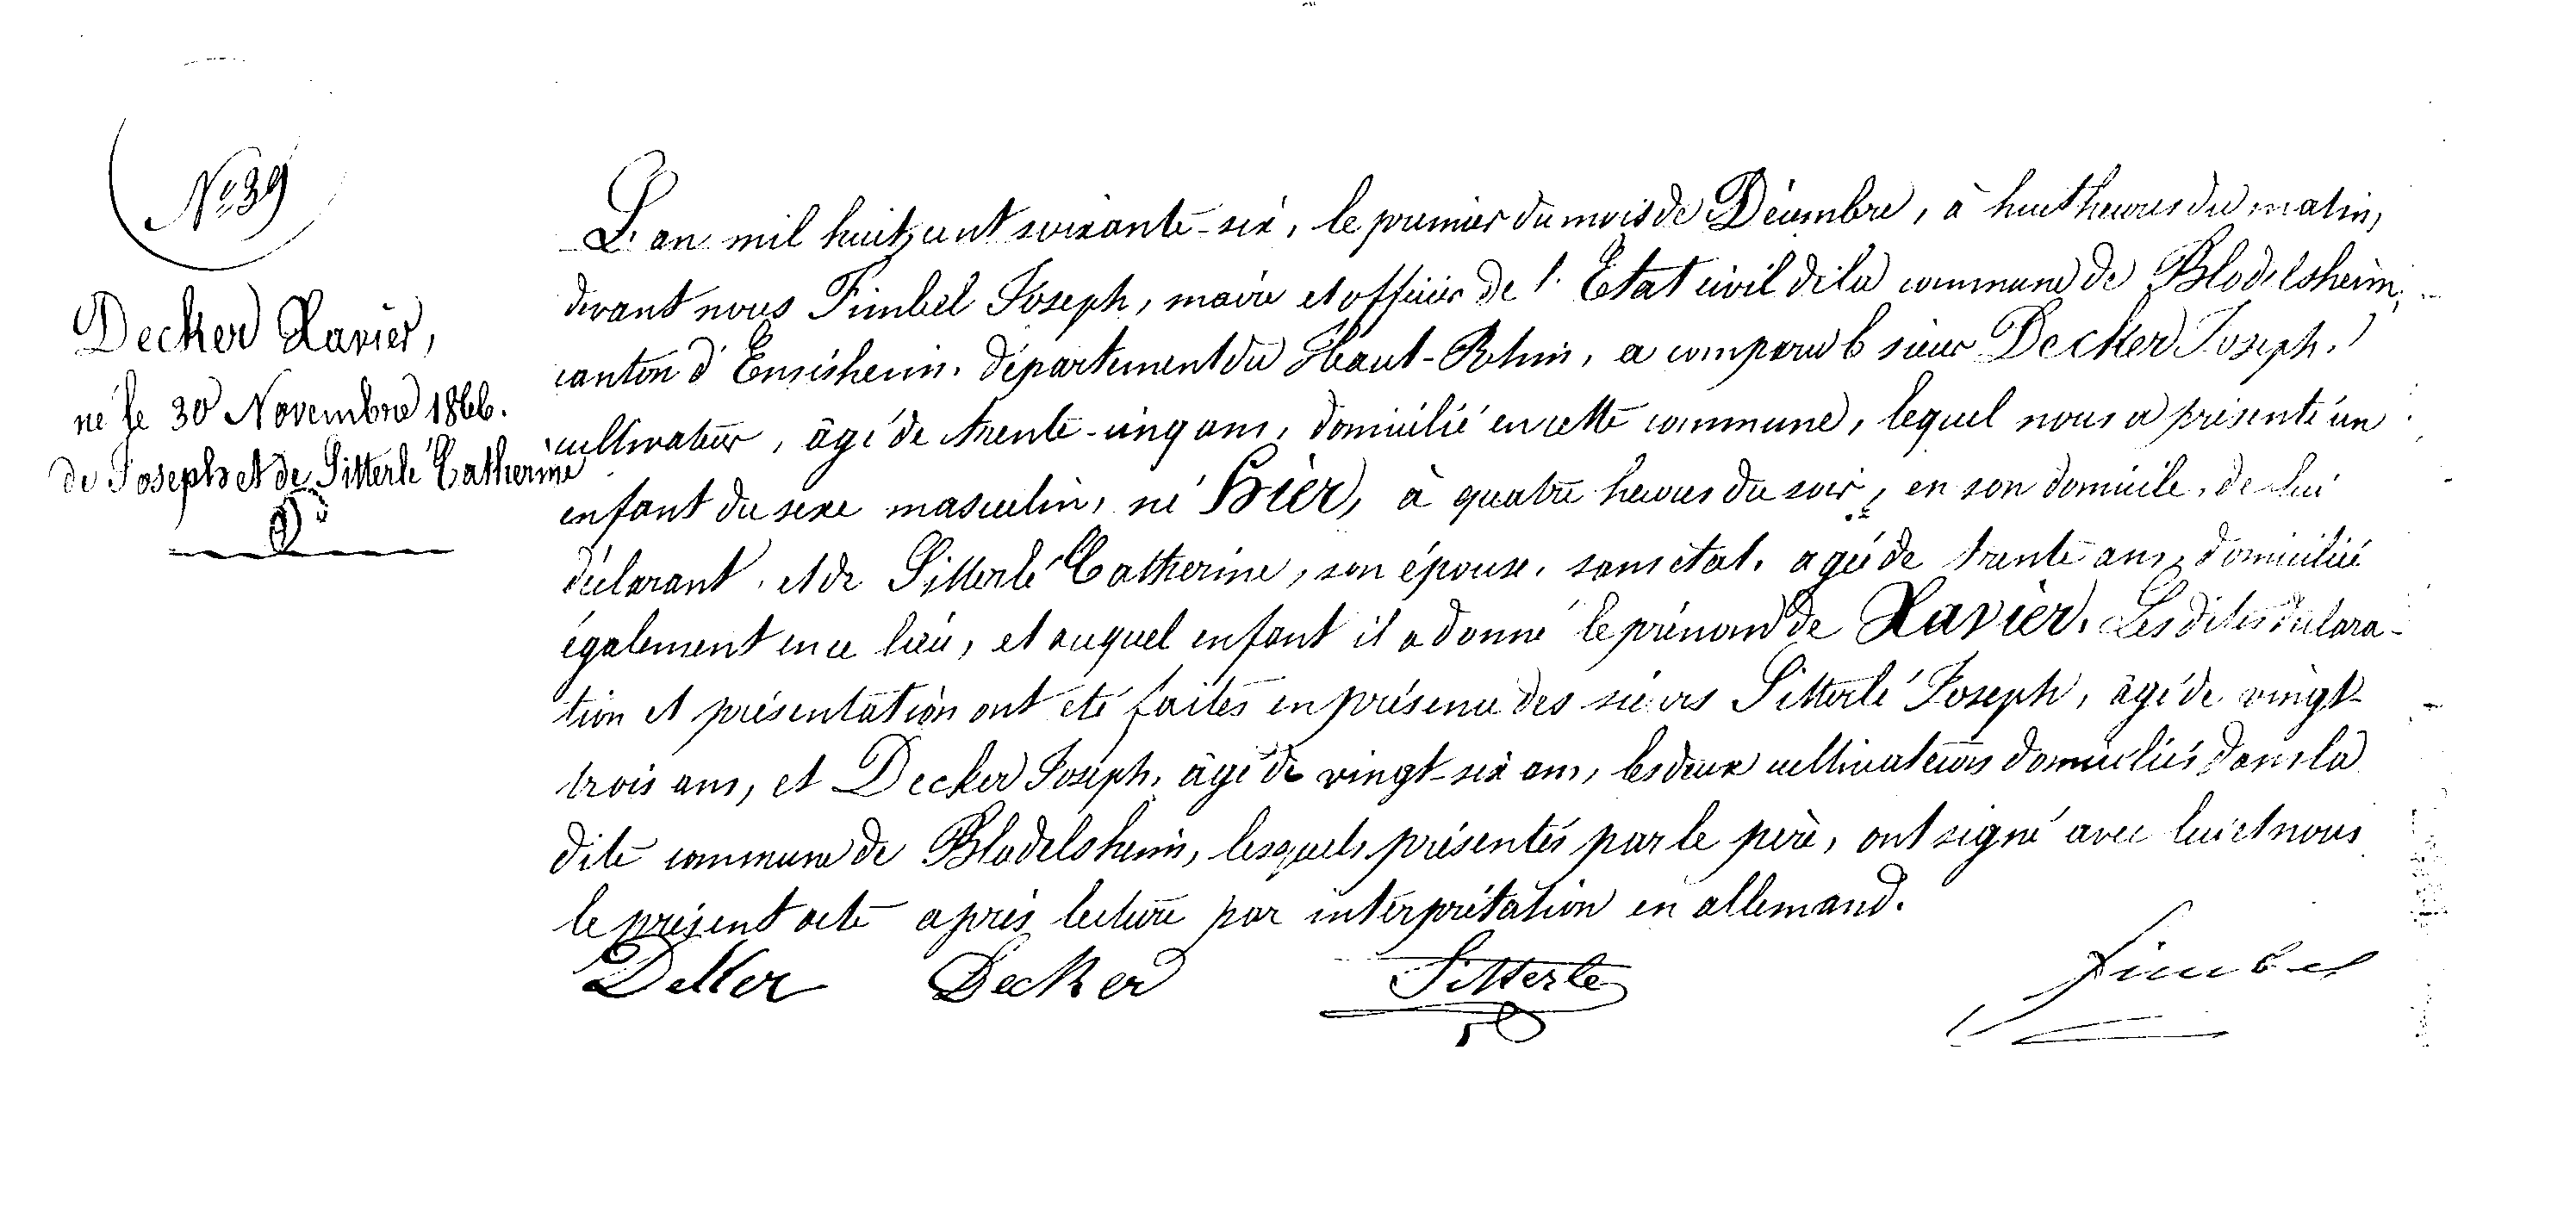 Nº 39
Decker Xavier,
né le 30 Novembre 1866.
de Joseph et de Sitterlé Catherine
L'an mil huit cent soixante-six, le premier du mois de Décembre, à huit heures du matin,
devant nous Fimbel Joseph, maire et officier de l'Etat civil de la commune de Blodelsheim,
canton d'Ensisheim, département du Haut-Rhin, a comparu le sieur Decker Joseph,
cultivateur, âgé de trente-cinq ans, domicilié en cette commune, lequel nous a présenté un
enfant du sexe masculin, né Hier, à quatre heures du soir, en son domicile, de lui
déclarant, et de Sitterlé Catherine, son épouse, sans état, agée de trente ans, domiciliée
également en ce lieu, et auquel enfant il a donné le prénom de Xavier. Les dites déclara-
tion et présentation ont été faites en présence des sieurs Sitterlé Joseph, âgé de vingt-
trois ans, et Decker Joseph, âgé de vingt-six ans, les deux cultivateurs domiciliés dans la
dite commune de Blodelsheim, lesquels présentés par le père, ont signé avec lui et nous
le présent acte après lecture par interprétation en allemand.
Decker Decker Sitterle Fimbel